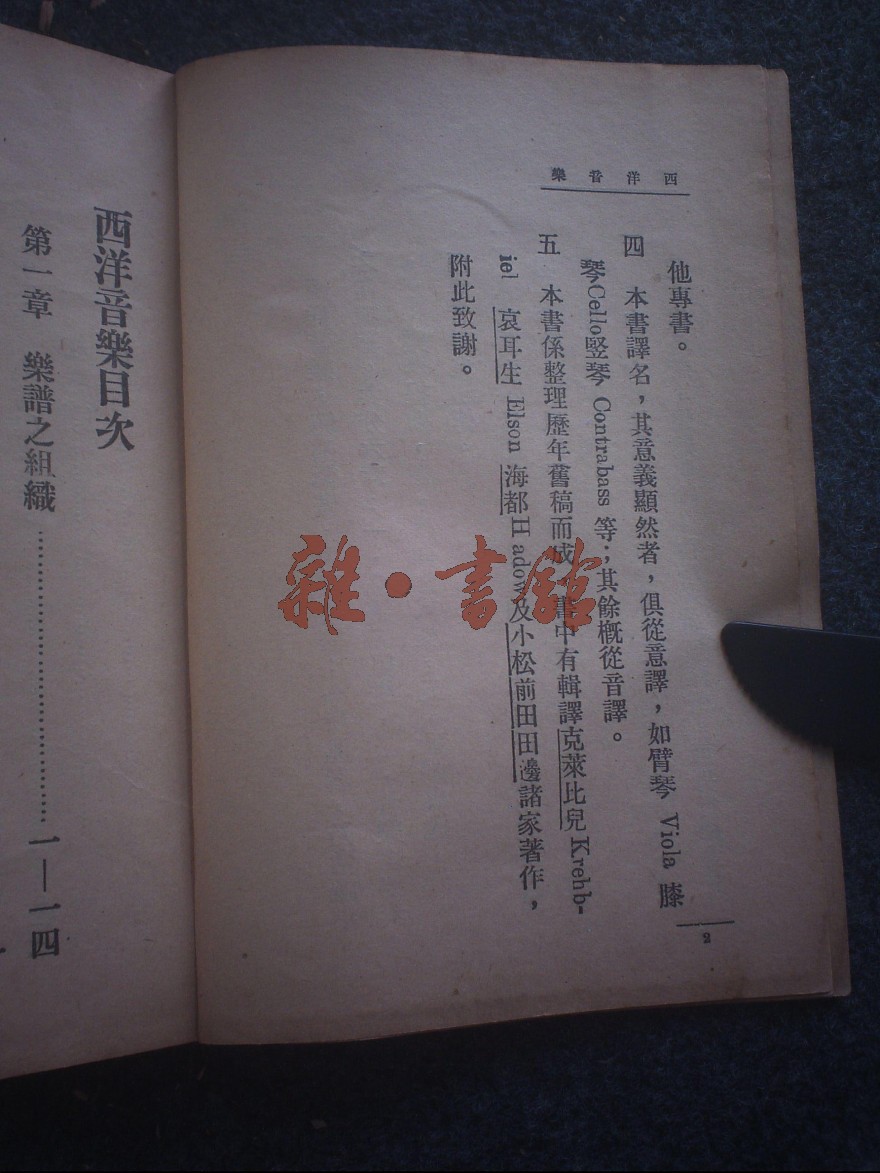 西洋音樂
他專書。
四 本書譯名，其意義顯然者，俱從意譯，如臂琴 Viola 膝
琴Cello豎琴 Contrabass 等；其餘概從音譯。
五 本書係整理歷年舊稿而成 書中有輯譯克萊比兒 Krehb-
iel 哀耳生 Elson 海都 Hadow及小松前田田邊諸家著作，
附此致謝。
2
西洋音樂目次
第一章 樂譜之組織……………………一—一四
雜·書館